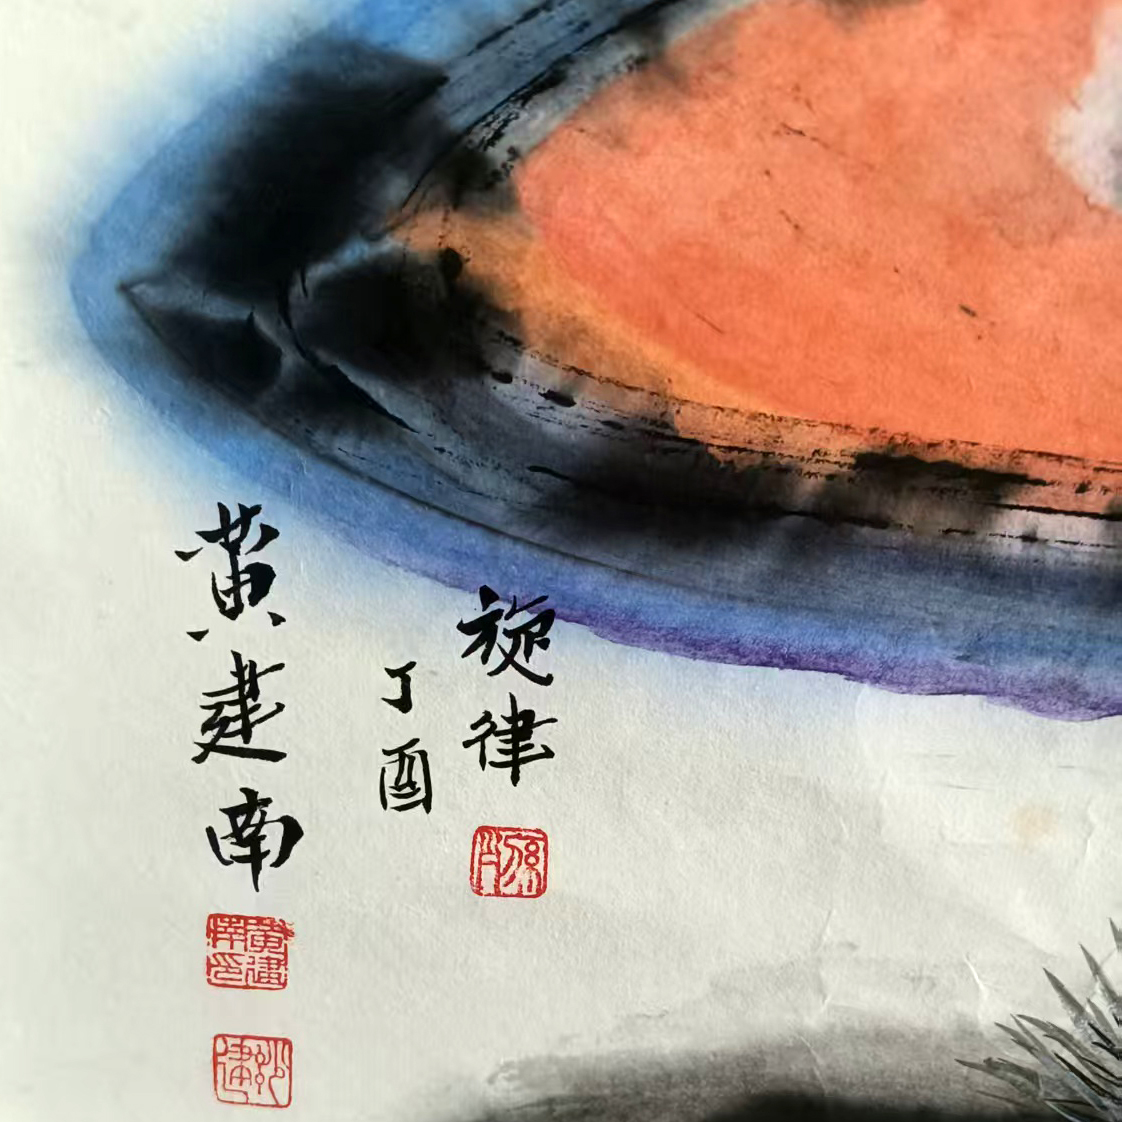 旋律
丁酉
黄建南